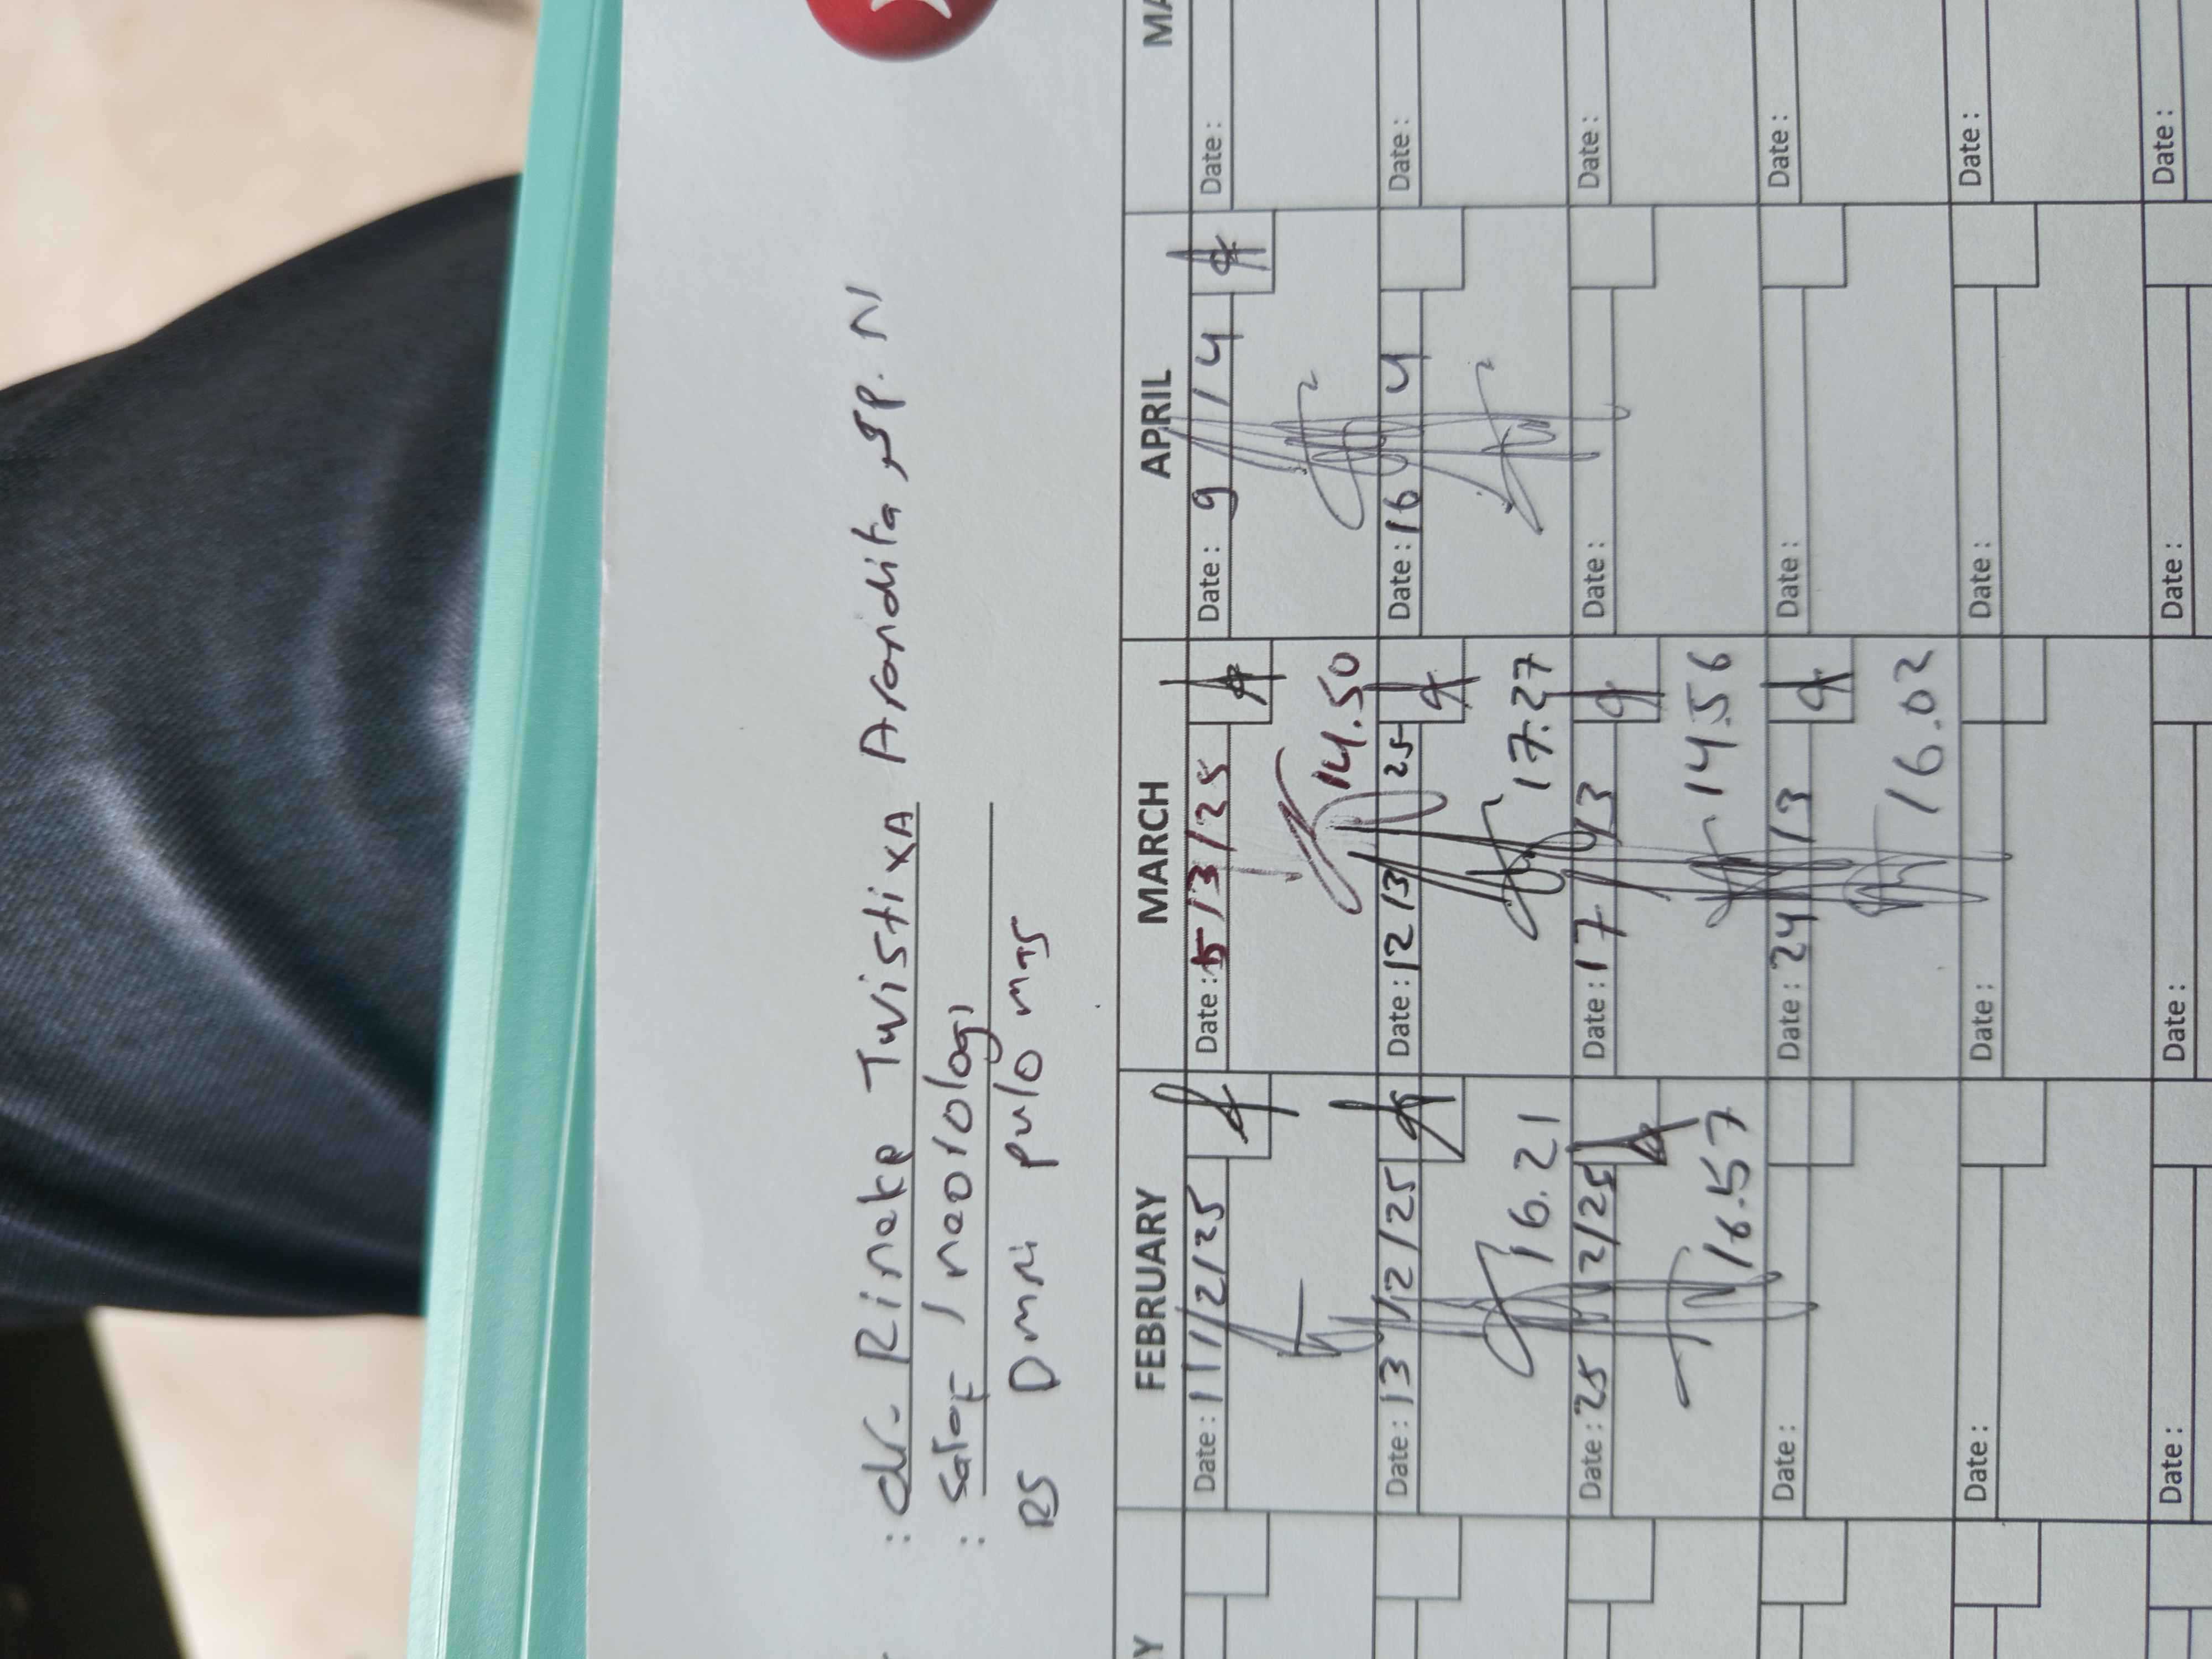 : dr. Rineke Twistixa Arandita, Sp. N
: Saraf / neorologi
RS Dmri pulo mas
Y FEBRUARY MARCH APRIL MA
Date : 11/2/25 Date : 5/3/25 Date : 9/4 Date :
14.50
Date : 13/2/25 Date : 12/3 25 Date : 16 4 Date :
16.21 17.27
Date : 25 2/25 Date : 17/3 Date : Date :
16.57 14.56
Date : Date : 24/3 Date : Date :
16.02
Date : Date : Date : Date :
Date : Date : Date : Date :